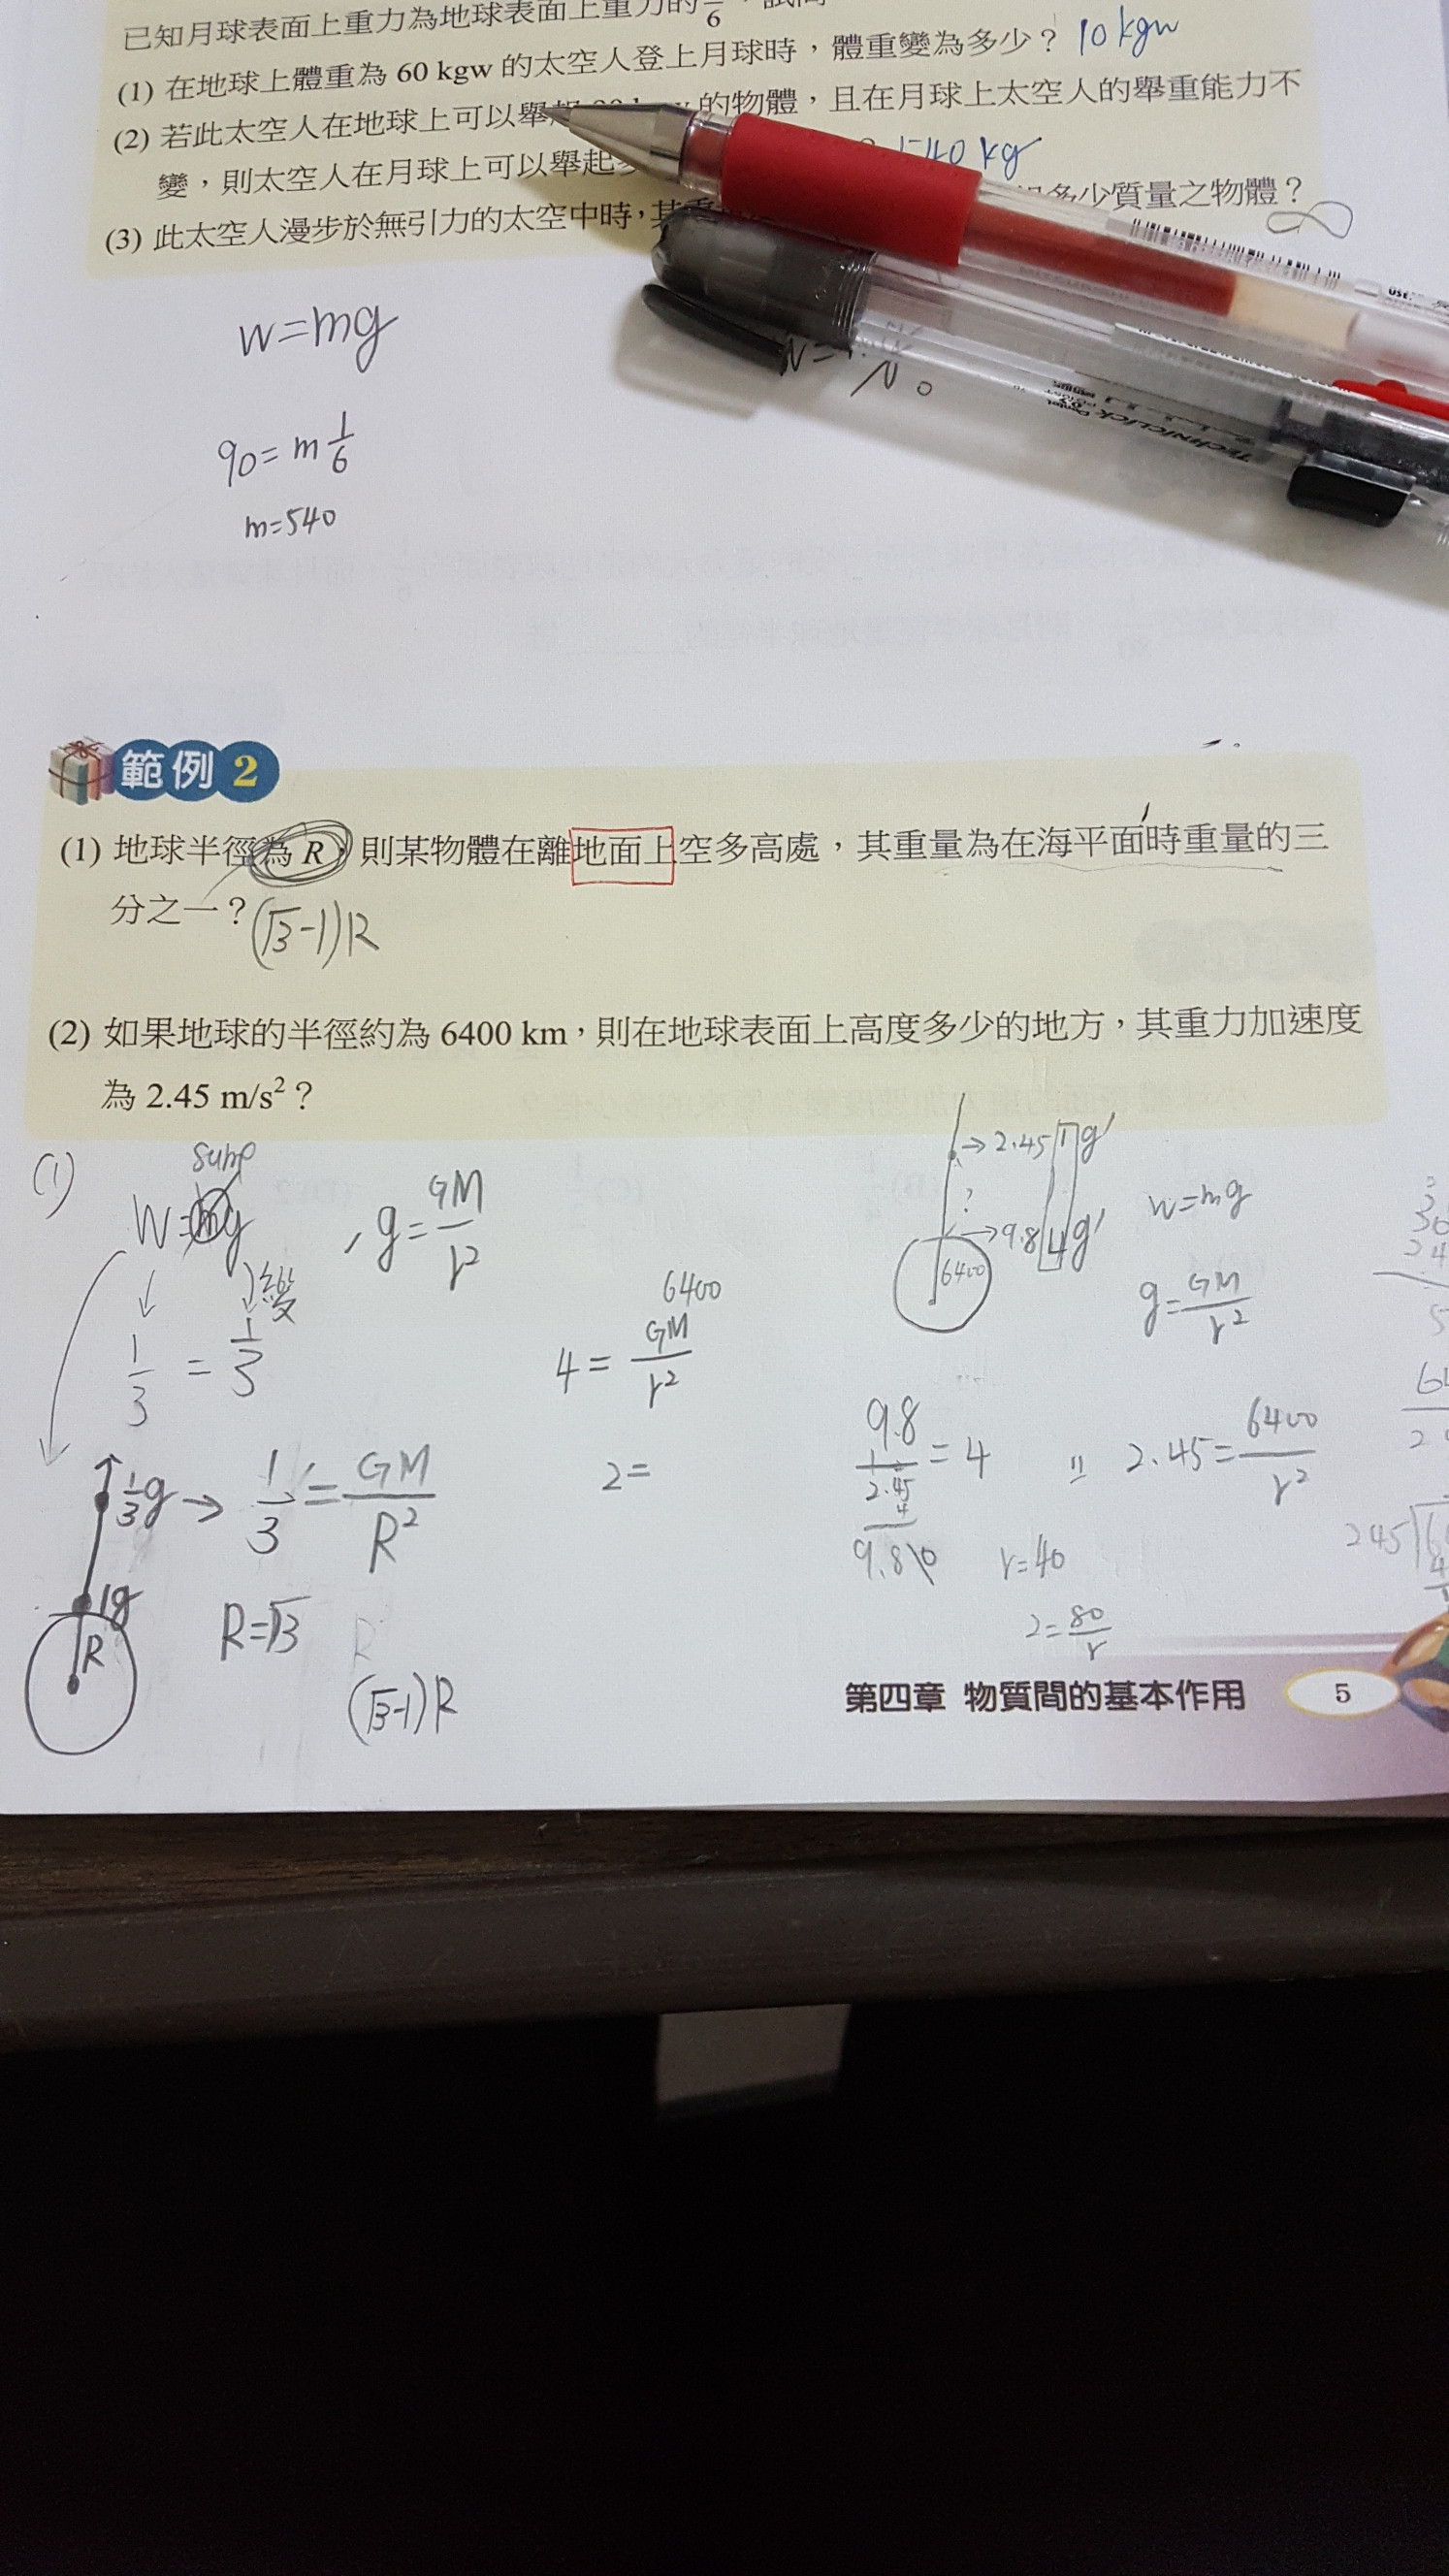 已知月球表面上重力為地球表面上重力的 1/6,試問
(1) 在地球上體重為 60 kgw 的太空人登上月球時,體重變為多少? 10 kgw
(2) 若此太空人在地球上可以舉起 的物體,且在月球上太空人的舉重能力不
變,則太空人在月球上可以舉起 540 kg
(3) 此太空人漫步於無引力的太空中時,其 多少質量之物體? ∞
w=mg
90=m 1/6
m=540
範例 2
(1) 地球半徑為 R,則某物體在離地面上空多高處,其重量為在海平面時重量的三
分之一? (√3-1)R
(2) 如果地球的半徑約為 6400 km,則在地球表面上高度多少的地方,其重力加速度
為 2.45 m/s²?
(1)
same
W=mg , g=GM/r²
變
1/3 = 1/3
1/3 g → 1/3 = GM/R²
1g
R
R=√3
(√3-1)R
6400
4 = GM/r²
2=
→2.45 1g'
?
→9.8 4g'
6400
w=mg
g=GM/r²
9.8/2.45 = 4
4
9.80
2.45= 6400/r²
r=40
2= 80/r
245
第四章 物質間的基本作用 5
TECHNICLICK